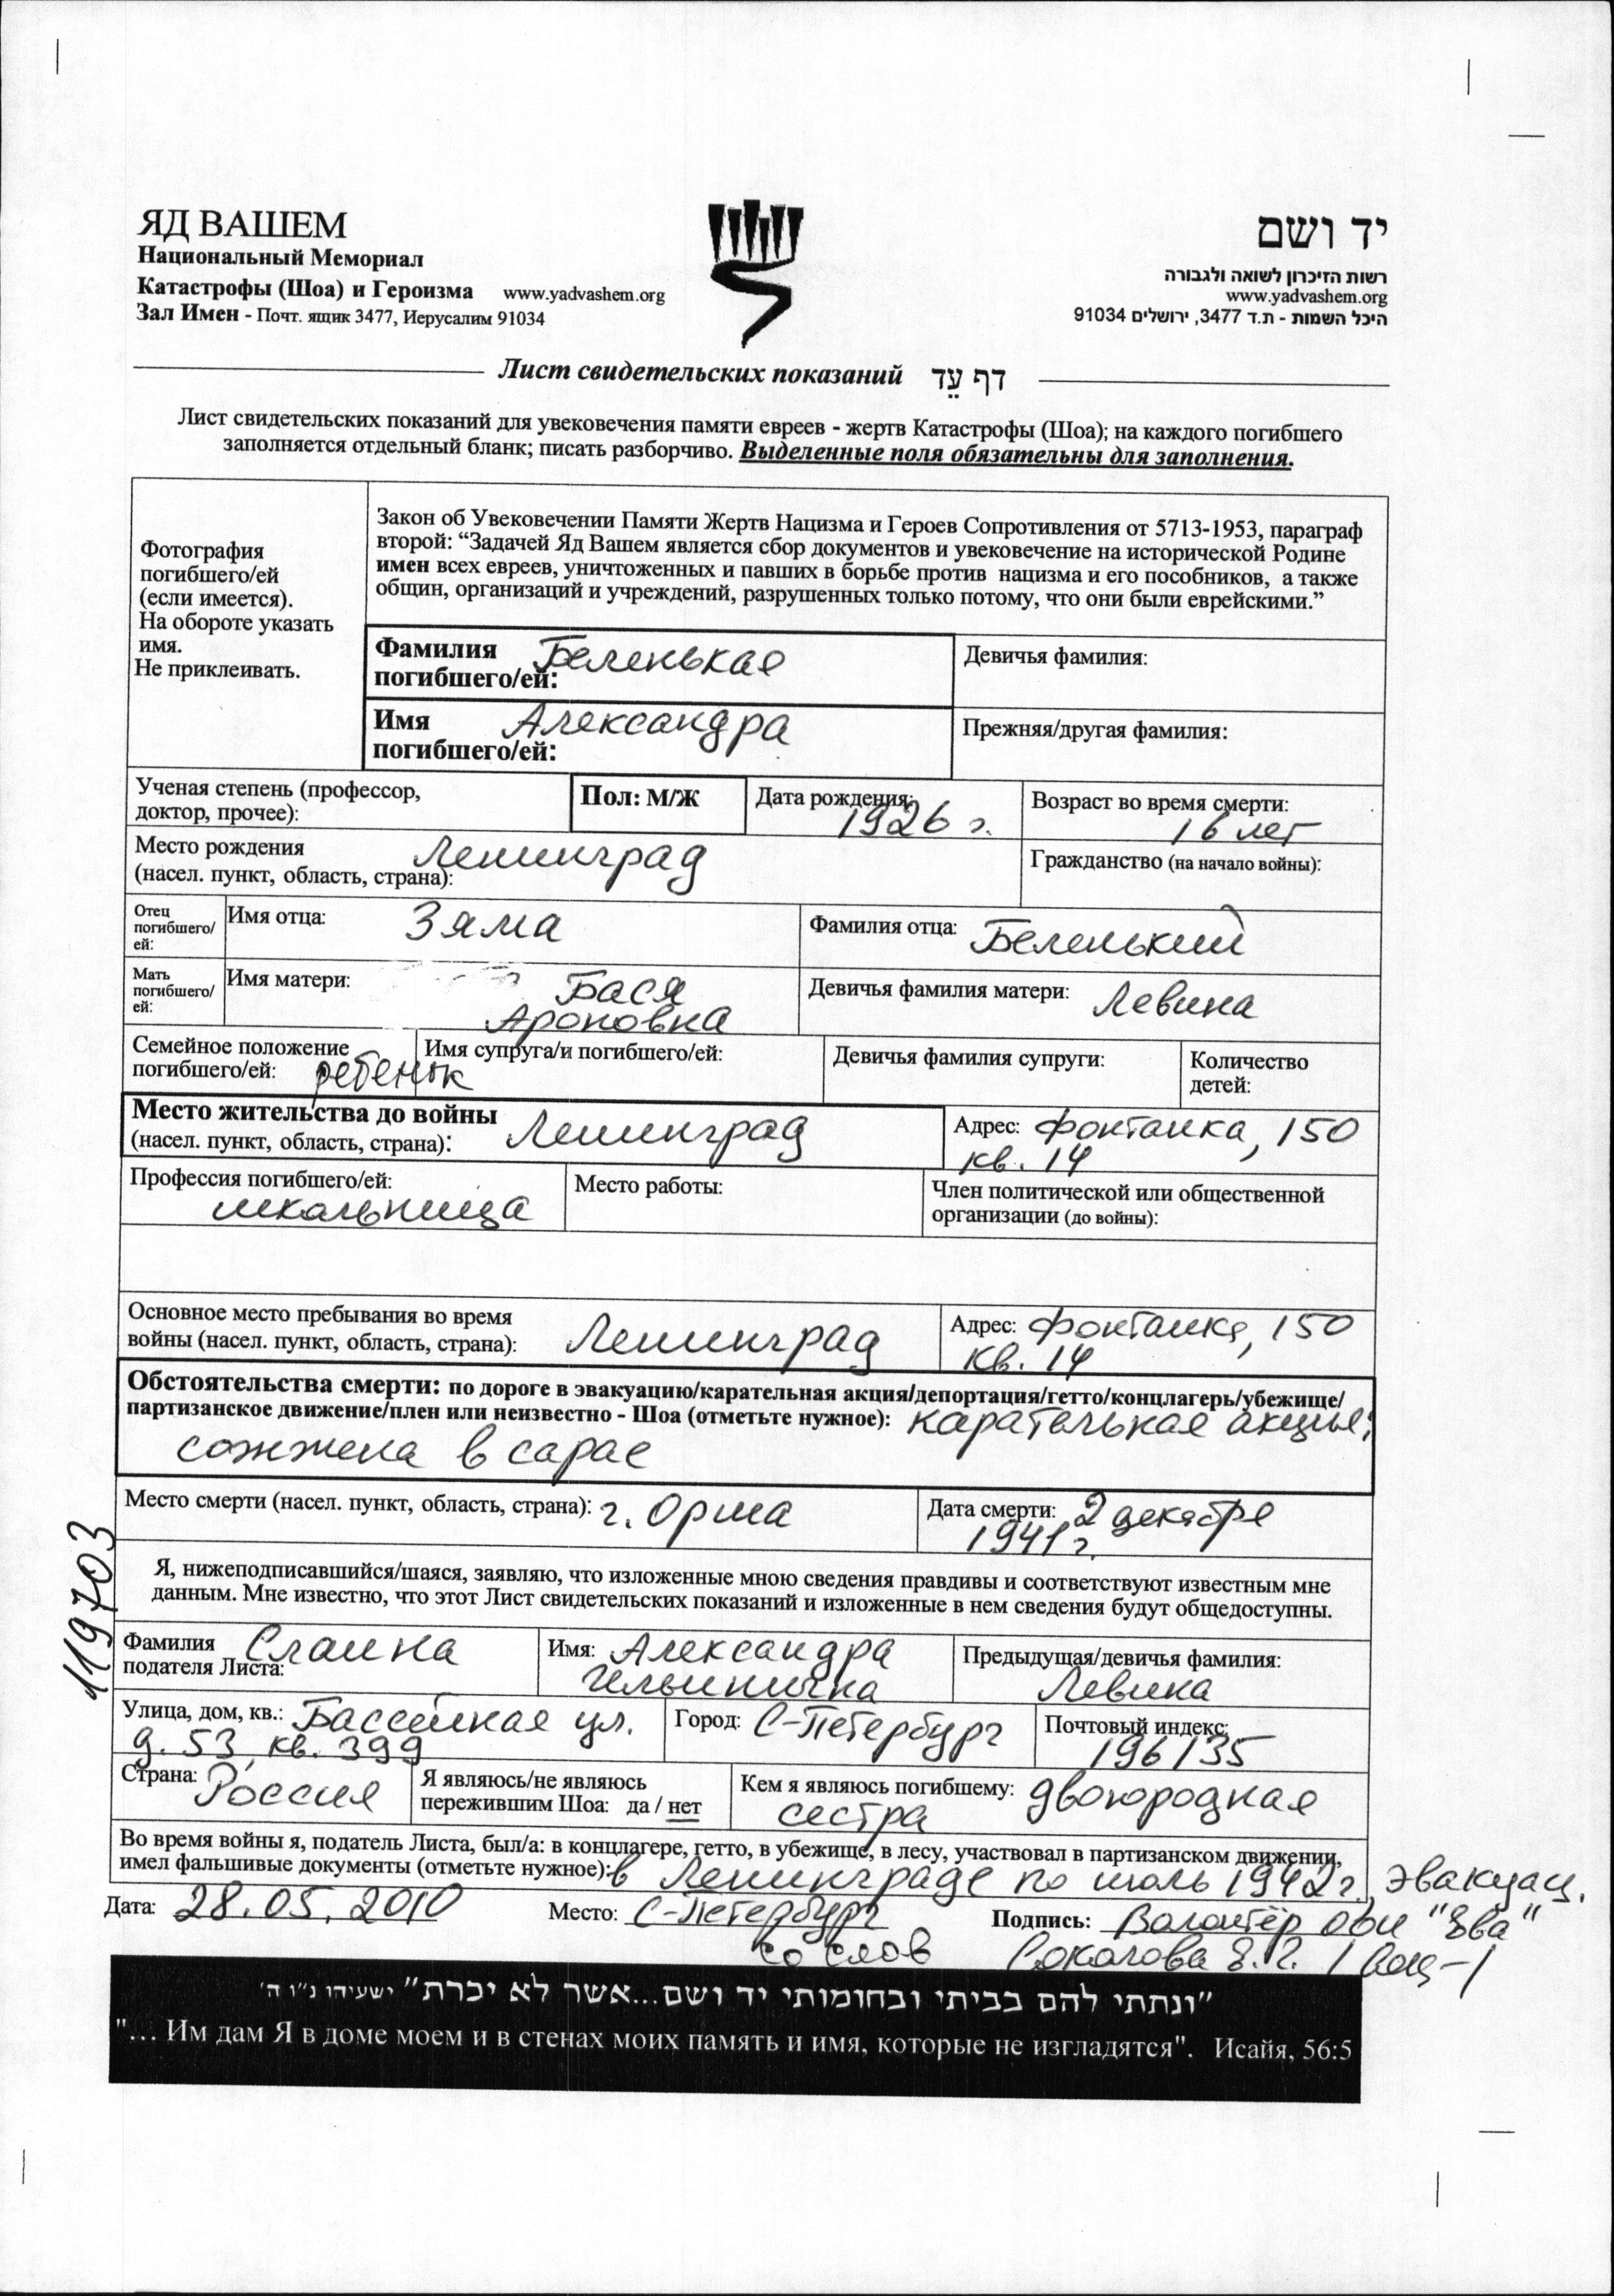 ЯД ВАШЕМ
Национальный Мемориал
Катастрофы (Шоа) и Героизма www.yadvashem.org
Зал Имен - Почт. ящик 3477, Иерусалим 91034
יד ושם
רשות הזיכרון לשואה ולגבורה
www.yadvashem.org
היכל השמות - ת.ד 3477, ירושלים 91034
Лист свидетельских показаний דף עֵד
Лист свидетельских показаний для увековечения памяти евреев - жертв Катастрофы (Шоа); на каждого погибшего
заполняется отдельный бланк; писать разборчиво. Выделенные поля обязательны для заполнения.
Фотография
погибшего/ей
(если имеется).
На обороте указать
имя.
Не приклеивать.
Закон об Увековечении Памяти Жертв Нацизма и Героев Сопротивления от 5713-1953, параграф
второй: “Задачей Яд Вашем является сбор документов и увековечение на исторической Родине
имен всех евреев, уничтоженных и павших в борьбе против нацизма и его пособников, а также
общин, организаций и учреждений, разрушенных только потому, что они были еврейскими.”
Фамилия
погибшего/ей: Беленькая
Девичья фамилия:
Имя
погибшего/ей: Александра
Прежняя/другая фамилия:
Ученая степень (профессор,
доктор, прочее):
Пол: М/Ж
Дата рождения:
1926 г.
Возраст во время смерти:
16 лет
Место рождения
(насел. пункт, область, страна): Ленинград
Гражданство (на начало войны):
Отец
погибшего/
ей:
Имя отца: Зяма
Фамилия отца: Беленький
Мать
погибшего/
ей:
Имя матери: Бася
Ароновна
Девичья фамилия матери: Левина
Семейное положение
погибшего/ей: ребенок
Имя супруга/и погибшего/ей:
Девичья фамилия супруги:
Количество
детей:
Место жительства до войны
(насел. пункт, область, страна): Ленинград
Адрес: Фонтанка, 150
кв. 14
Профессия погибшего/ей:
школьница
Место работы:
Член политической или общественной
организации (до войны):
Основное место пребывания во время
войны (насел. пункт, область, страна): Ленинград
Адрес: Фонтанка, 150
кв. 14
Обстоятельства смерти: по дороге в эвакуацию/карательная акция/депортация/гетто/концлагерь/убежище/
партизанское движение/плен или неизвестно - Шоа (отметьте нужное): карательная акция;
сожжена в сарае
Место смерти (насел. пункт, область, страна): г. Орша
Дата смерти: 2 декабря
1941 г.
Я, нижеподписавшийся/шаяся, заявляю, что изложенные мною сведения правдивы и соответствуют известным мне
данным. Мне известно, что этот Лист свидетельских показаний и изложенные в нем сведения будут общедоступны.
119703
Фамилия
подателя Листа: Слаина
Имя: Александра
Ильинична
Предыдущая/девичья фамилия:
Левина
Улица, дом, кв.: Бассейная ул.
д. 53, кв. 399
Город: С-Петербург
Почтовый индекс:
196135
Страна: Россия
Я являюсь/не являюсь
пережившим Шоа: да / нет
Кем я являюсь погибшему: двоюродная
сестра
Во время войны я, податель Листа, был/а: в концлагере, гетто, в убежище, в лесу, участвовал в партизанском движении,
имел фальшивые документы (отметьте нужное): в Ленинграде по июль 1942 г., эвакуац.
Дата: 28.05.2010
Место: С-Петербург
Подпись: Волонтёр "Ева"
со слов Соколова Е. Г.
״ונתתי להם בביתי ובחומותי יד ושם...אשר לא יכרת״ ישעיהו נ״ו ה׳
"... Им дам Я в доме моем и в стенах моих память и имя, которые не изгладятся". Исайя, 56:5